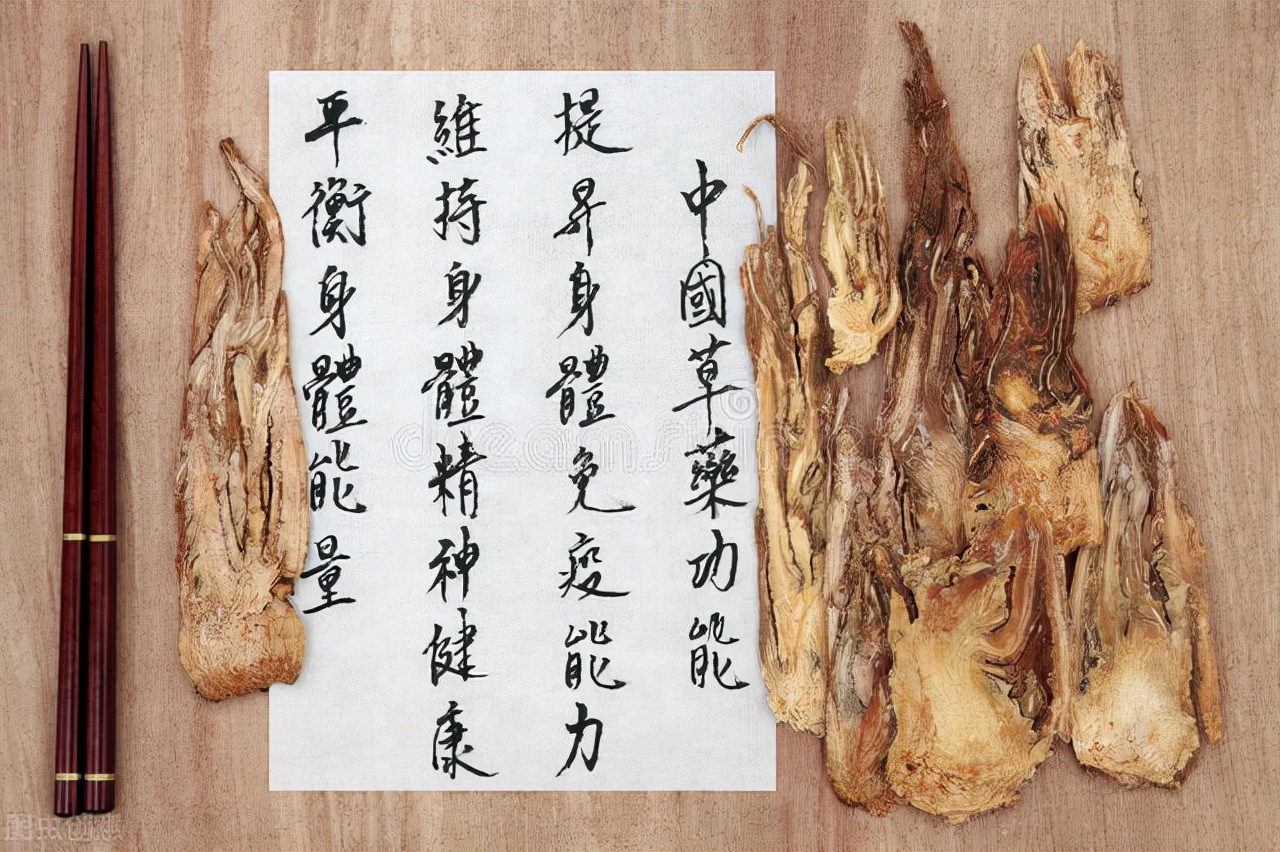 中國草藥功能
提昇身體免疫能力
維持身體精神健康
平衡身體能量
dreamstime